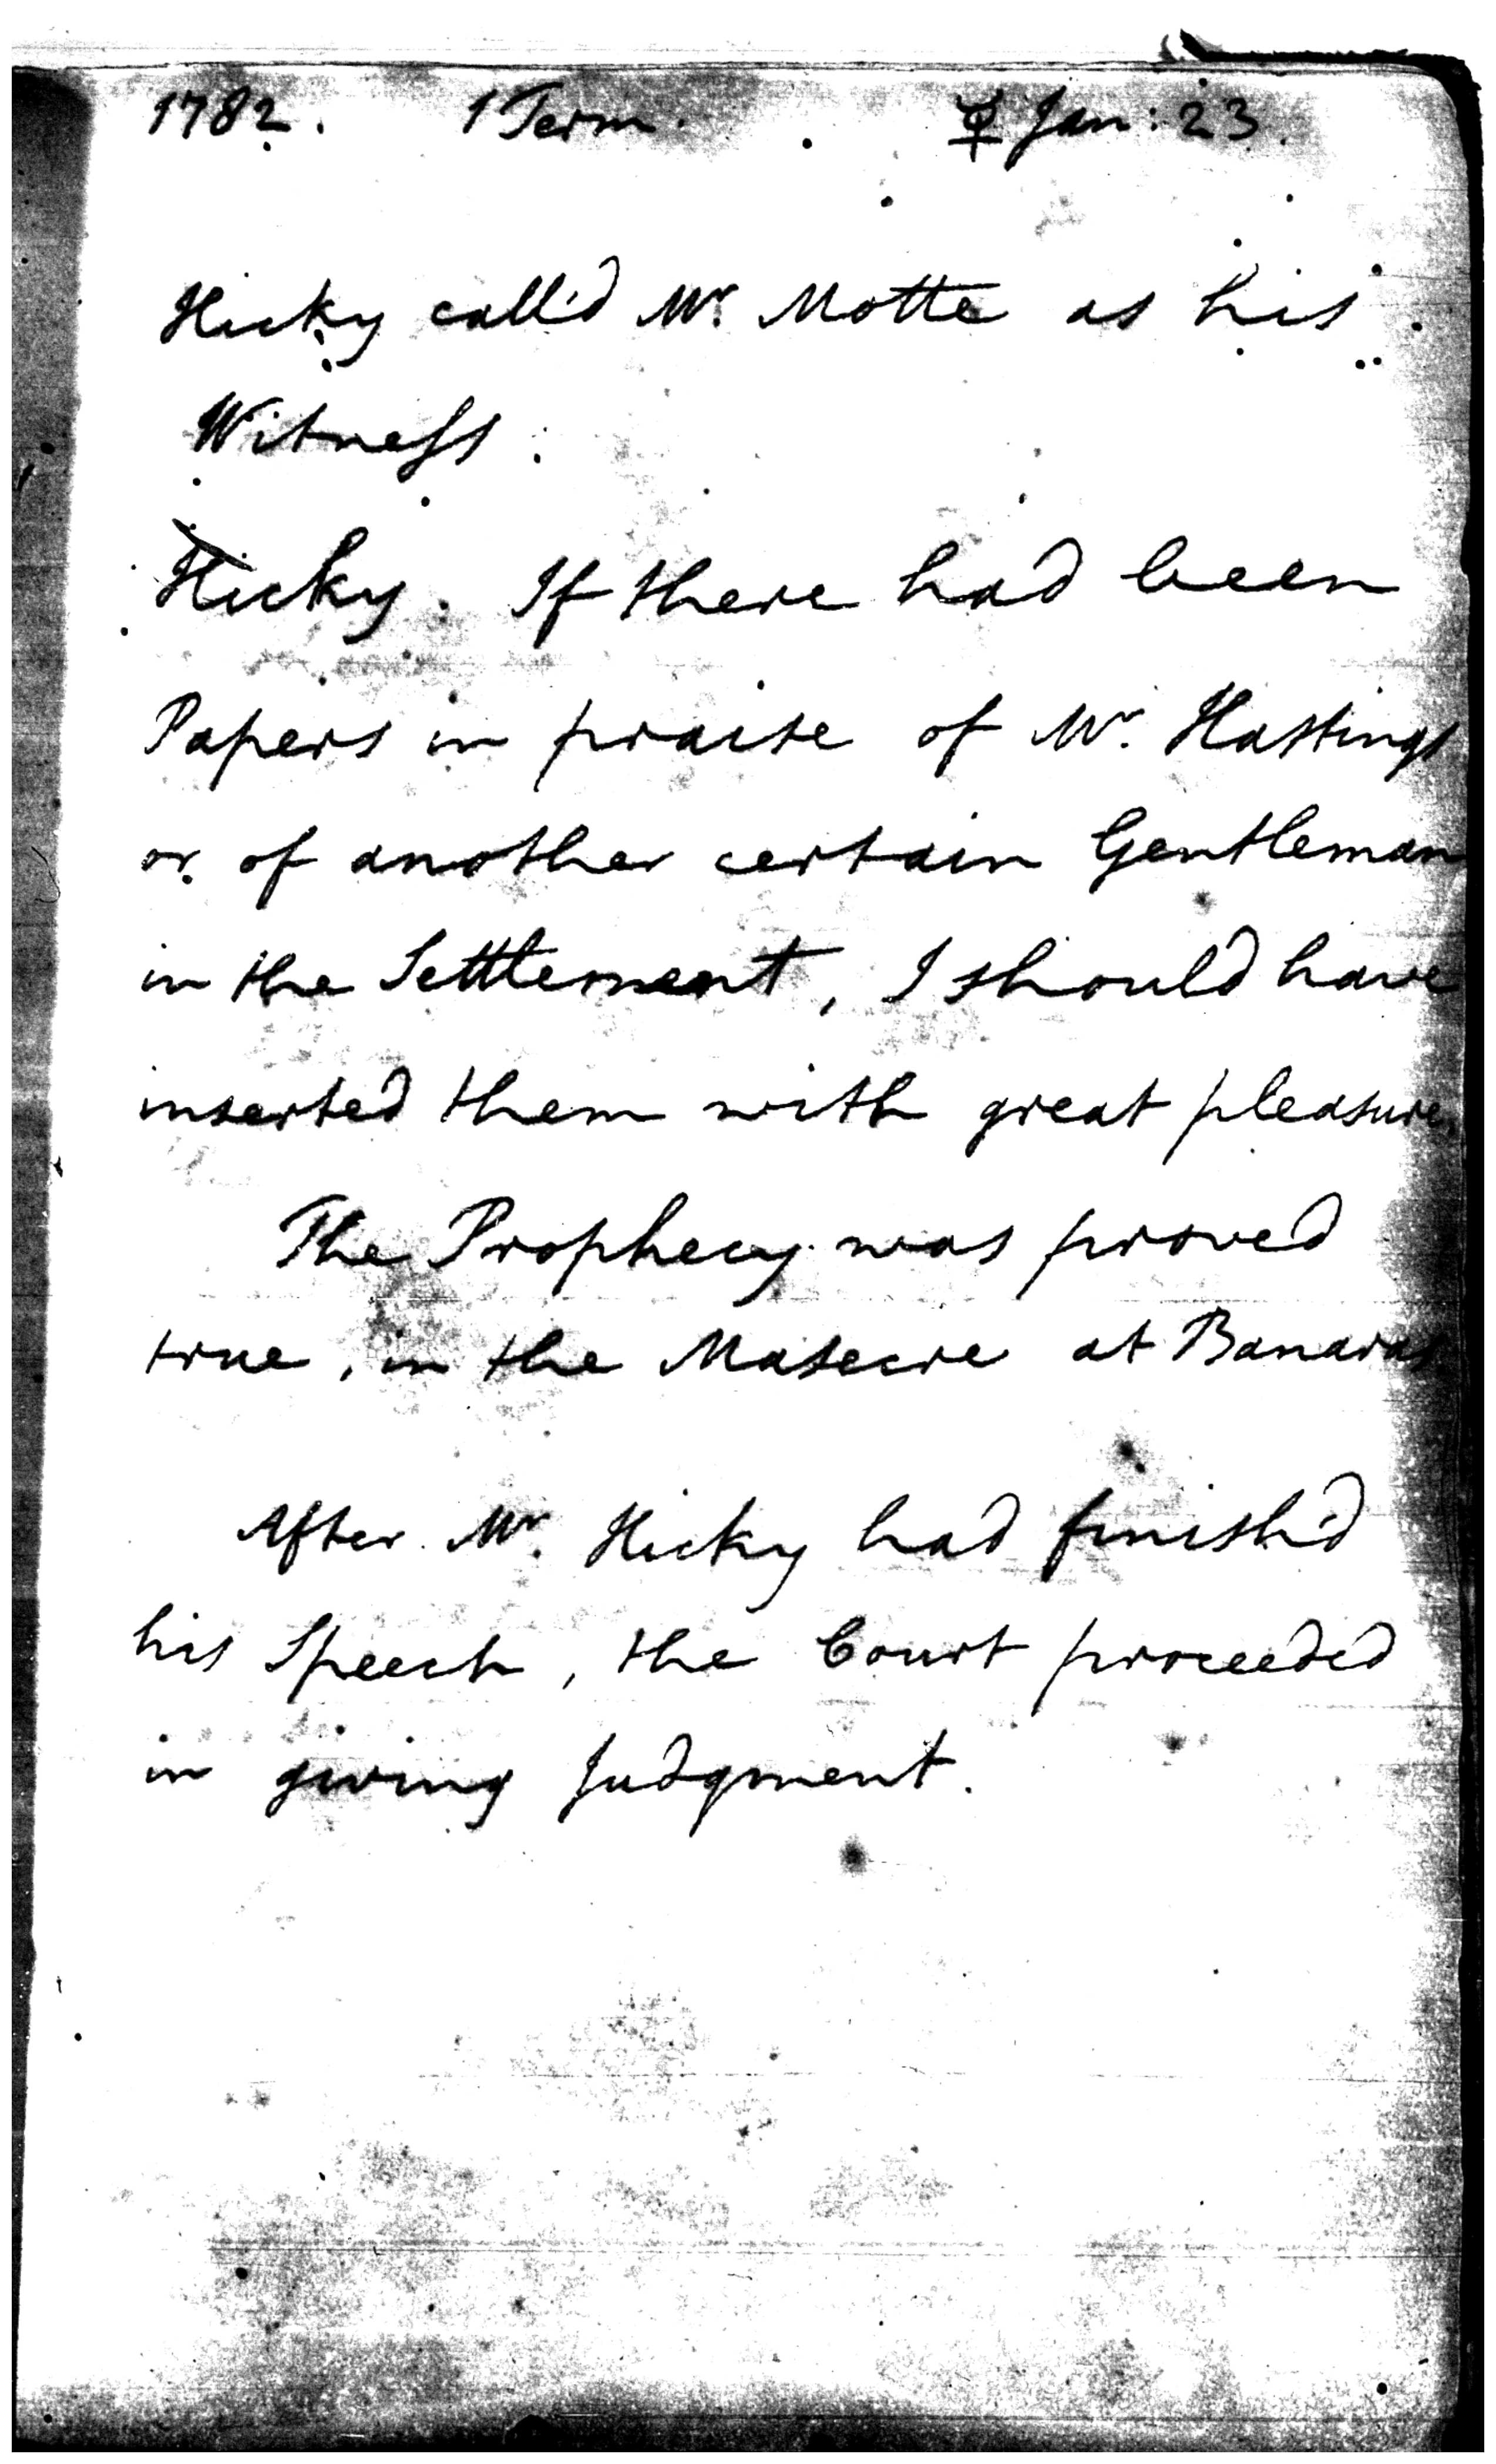 1782. 1 Term. ☿ Jan: 23.
Hicky call'd Mr. Motte as his
Witness:
Hicky. If there had been
Papers in praise of Mr. Hastings
or of another certain Gentleman
in the Settlement, I should have
inserted them with great pleasure.
The Prophecy was proved
true, in the Masecre at Banaras
After Mr. Hicky had finish'd
his Speech, the Court proceeded
in giving Judgment.